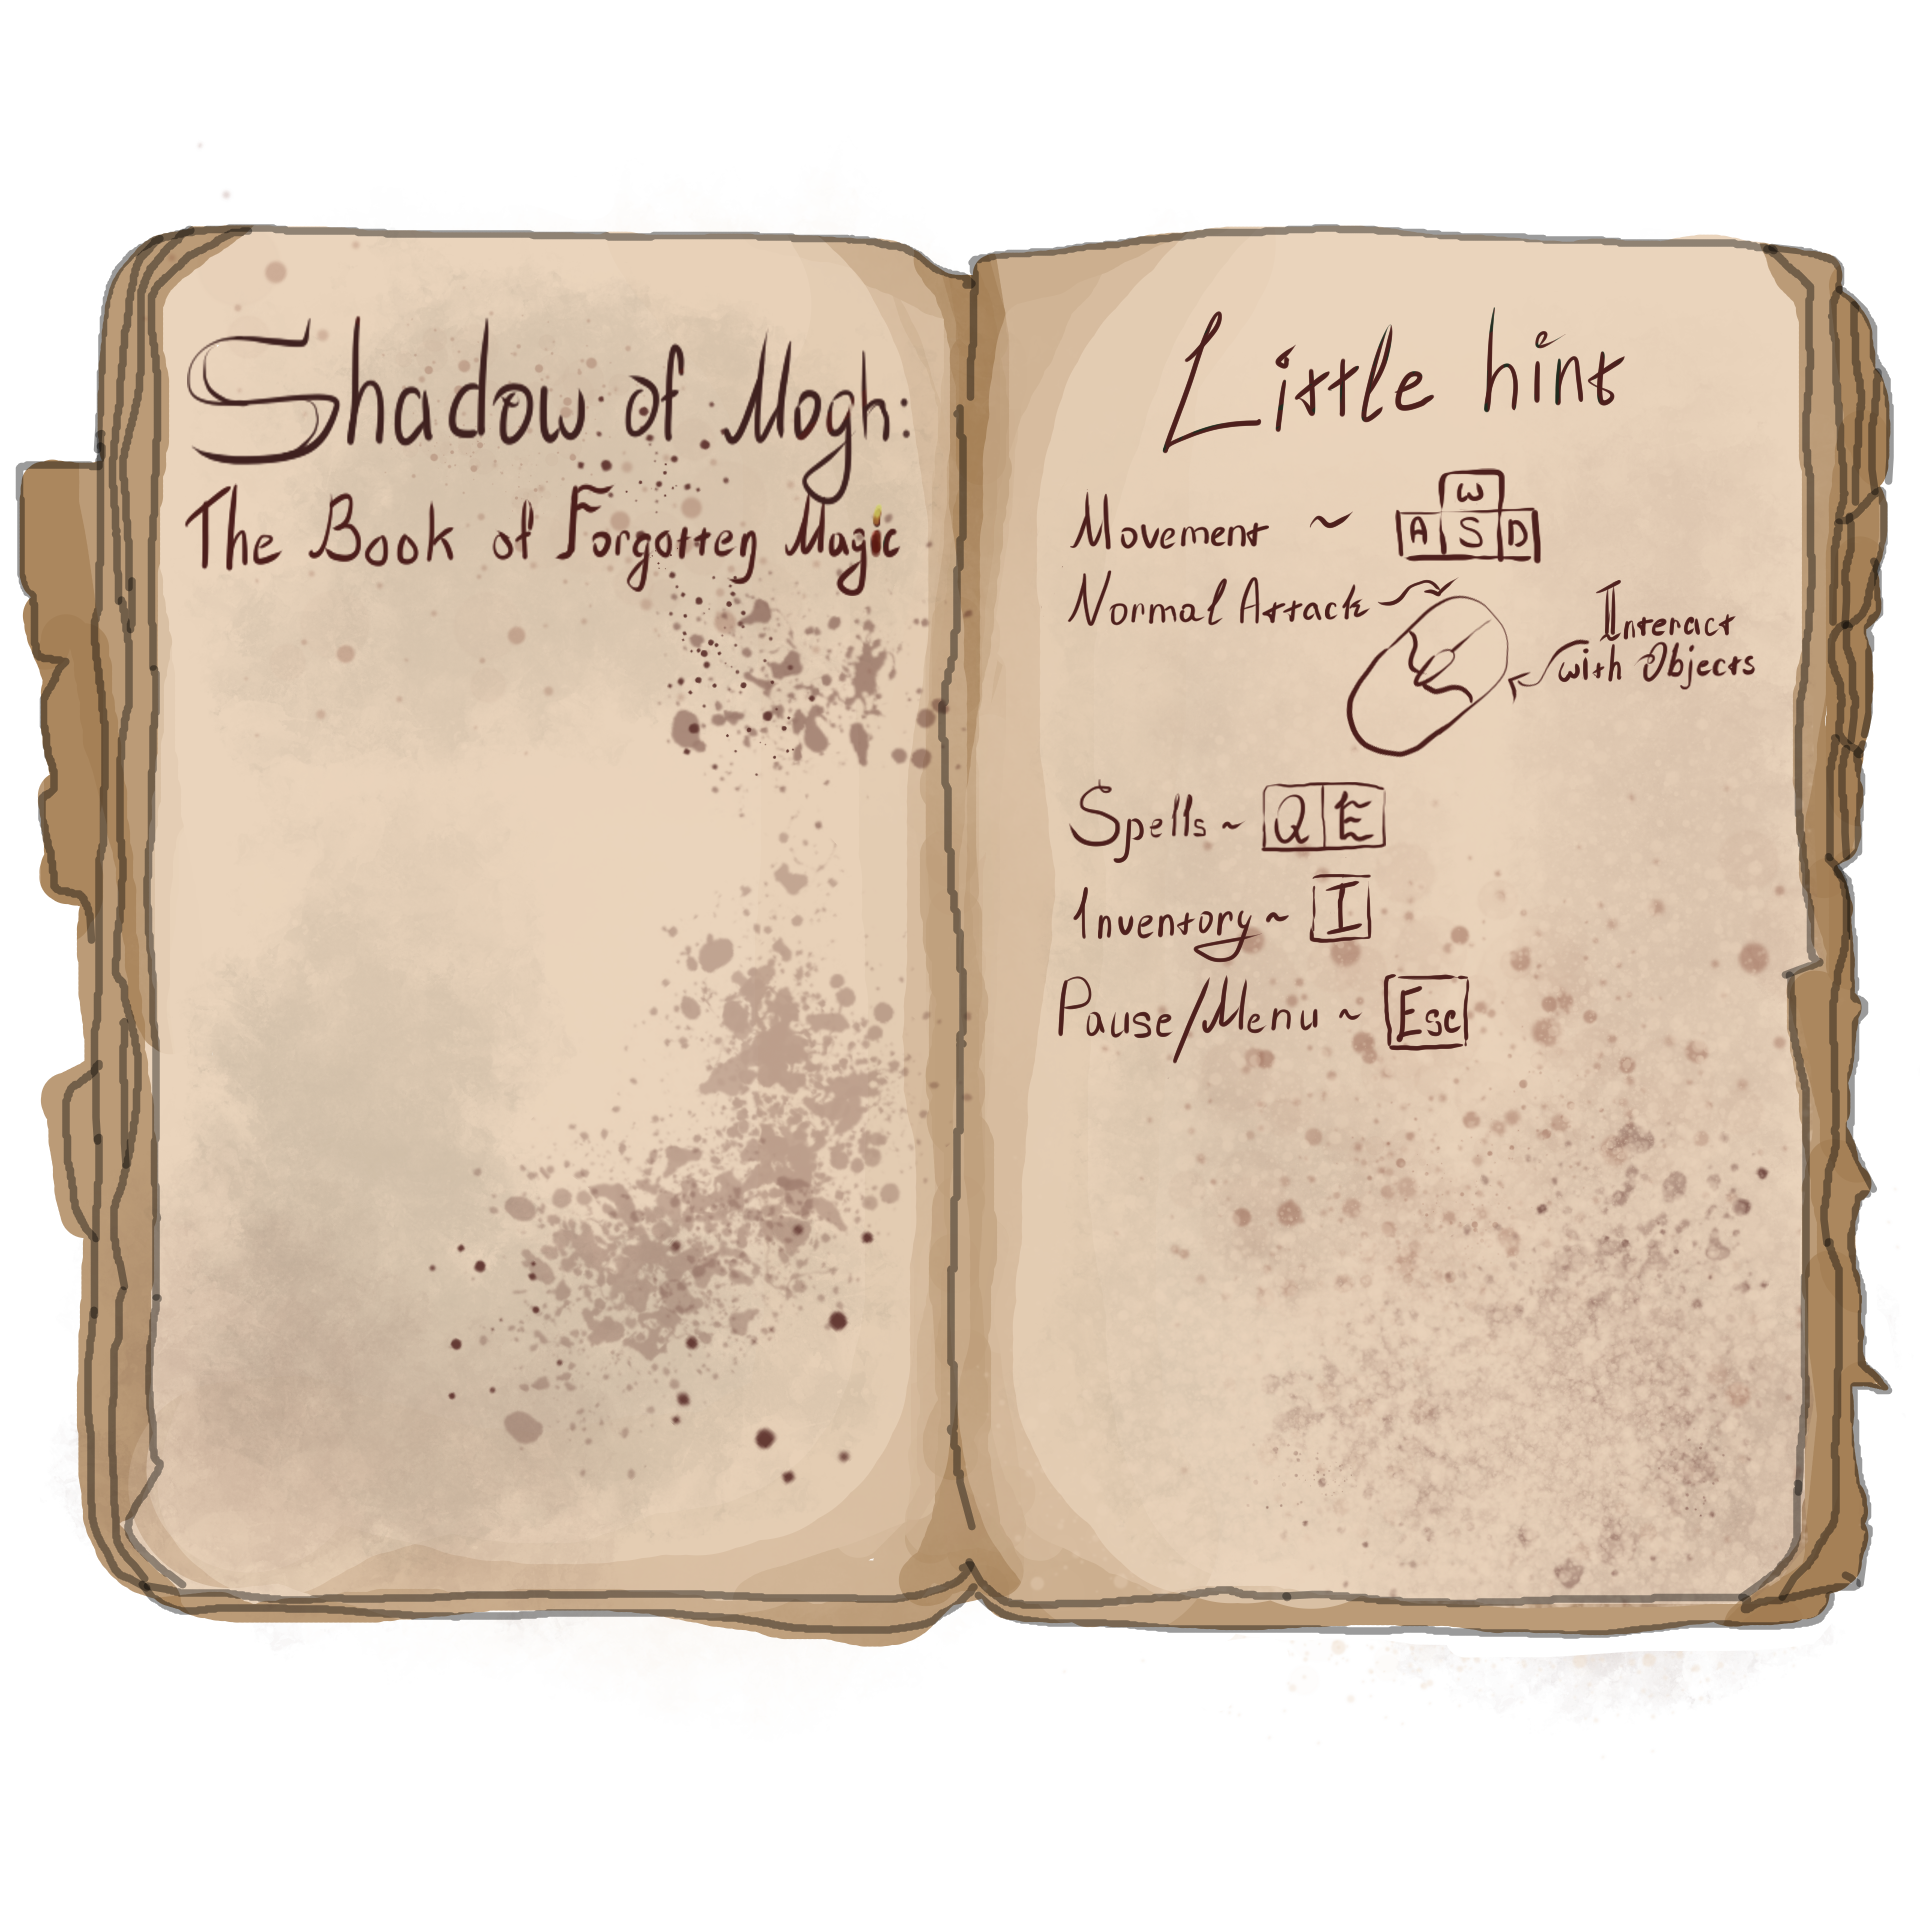 Shadow of Mogh:
The Book of Forgotten Magic
Little hint
Movement ~ W
A S D
Normal Attack
Interact
with Objects
Spells ~ Q E
Inventory ~ I
Pause/Menu ~ Esc